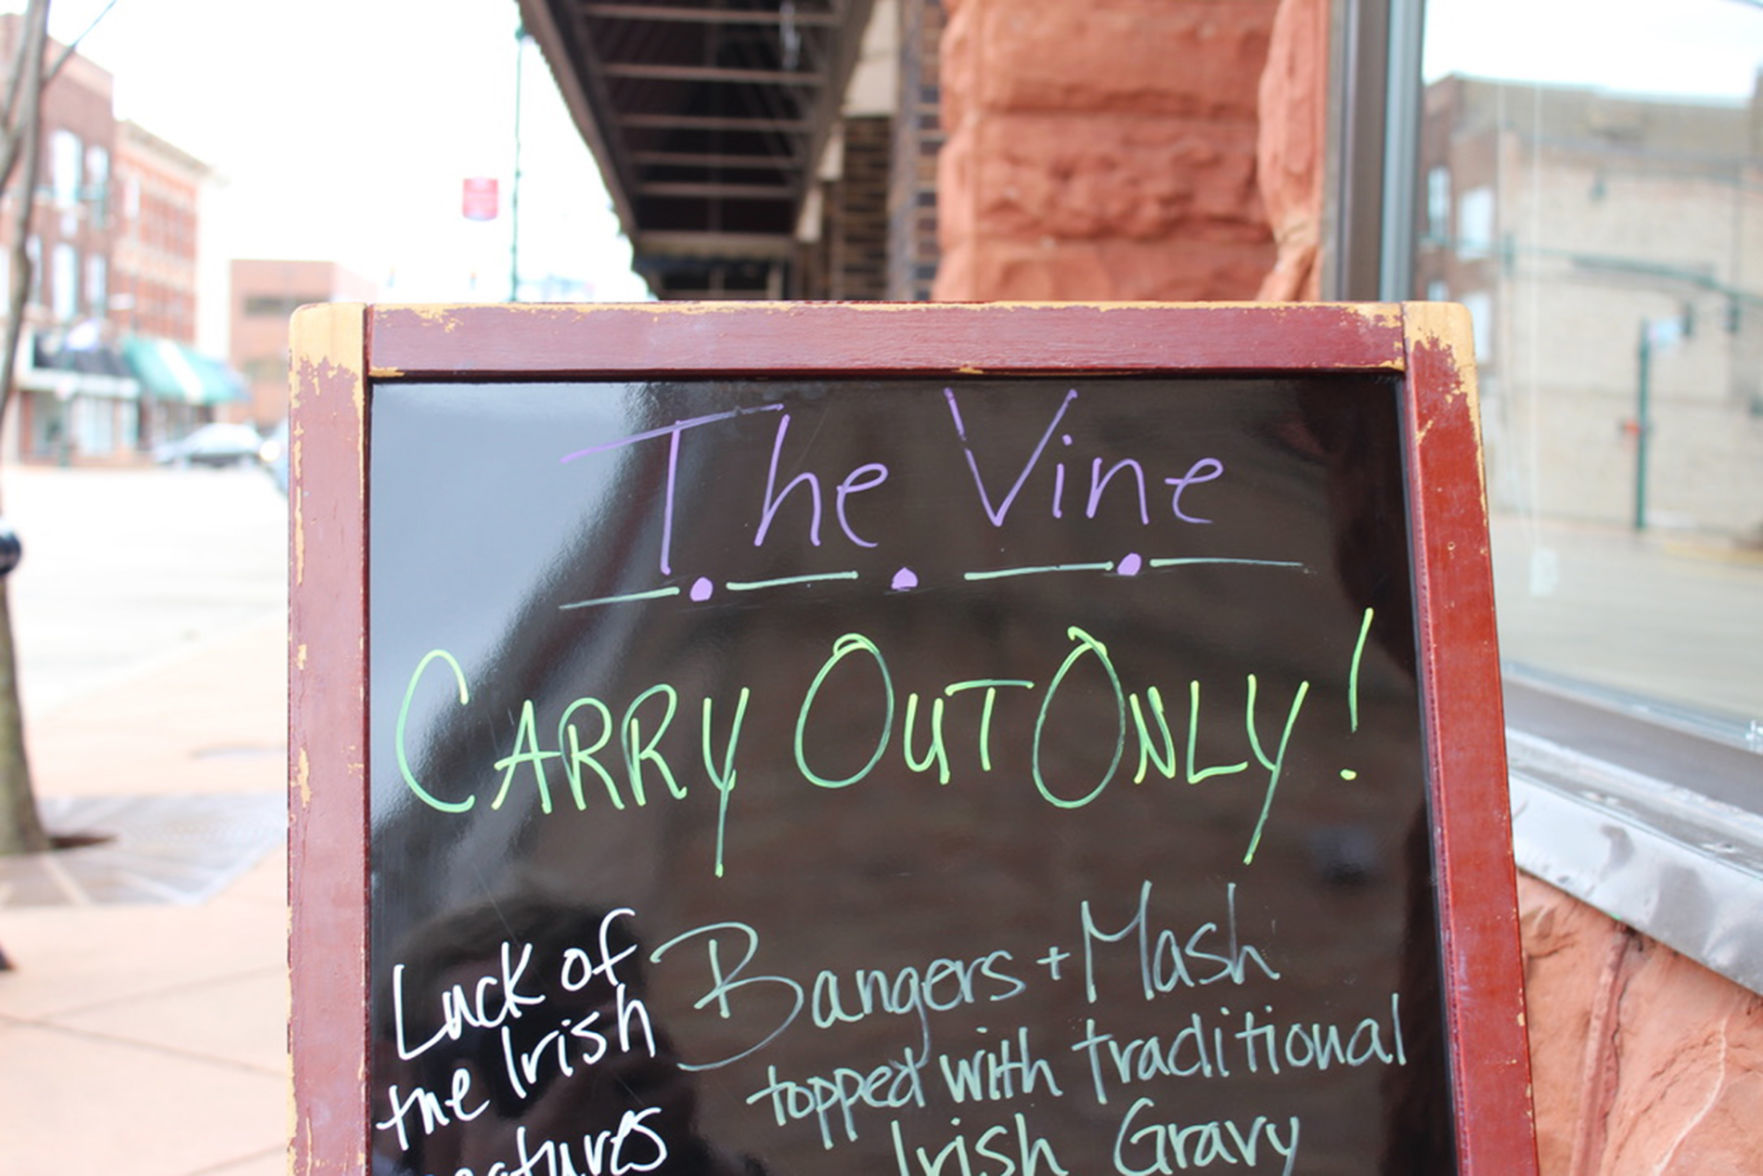 The Vine
CARRY OUT ONLY!
Luck of
the Irish
Bangers + Mash
topped with traditional
Irish Gravy